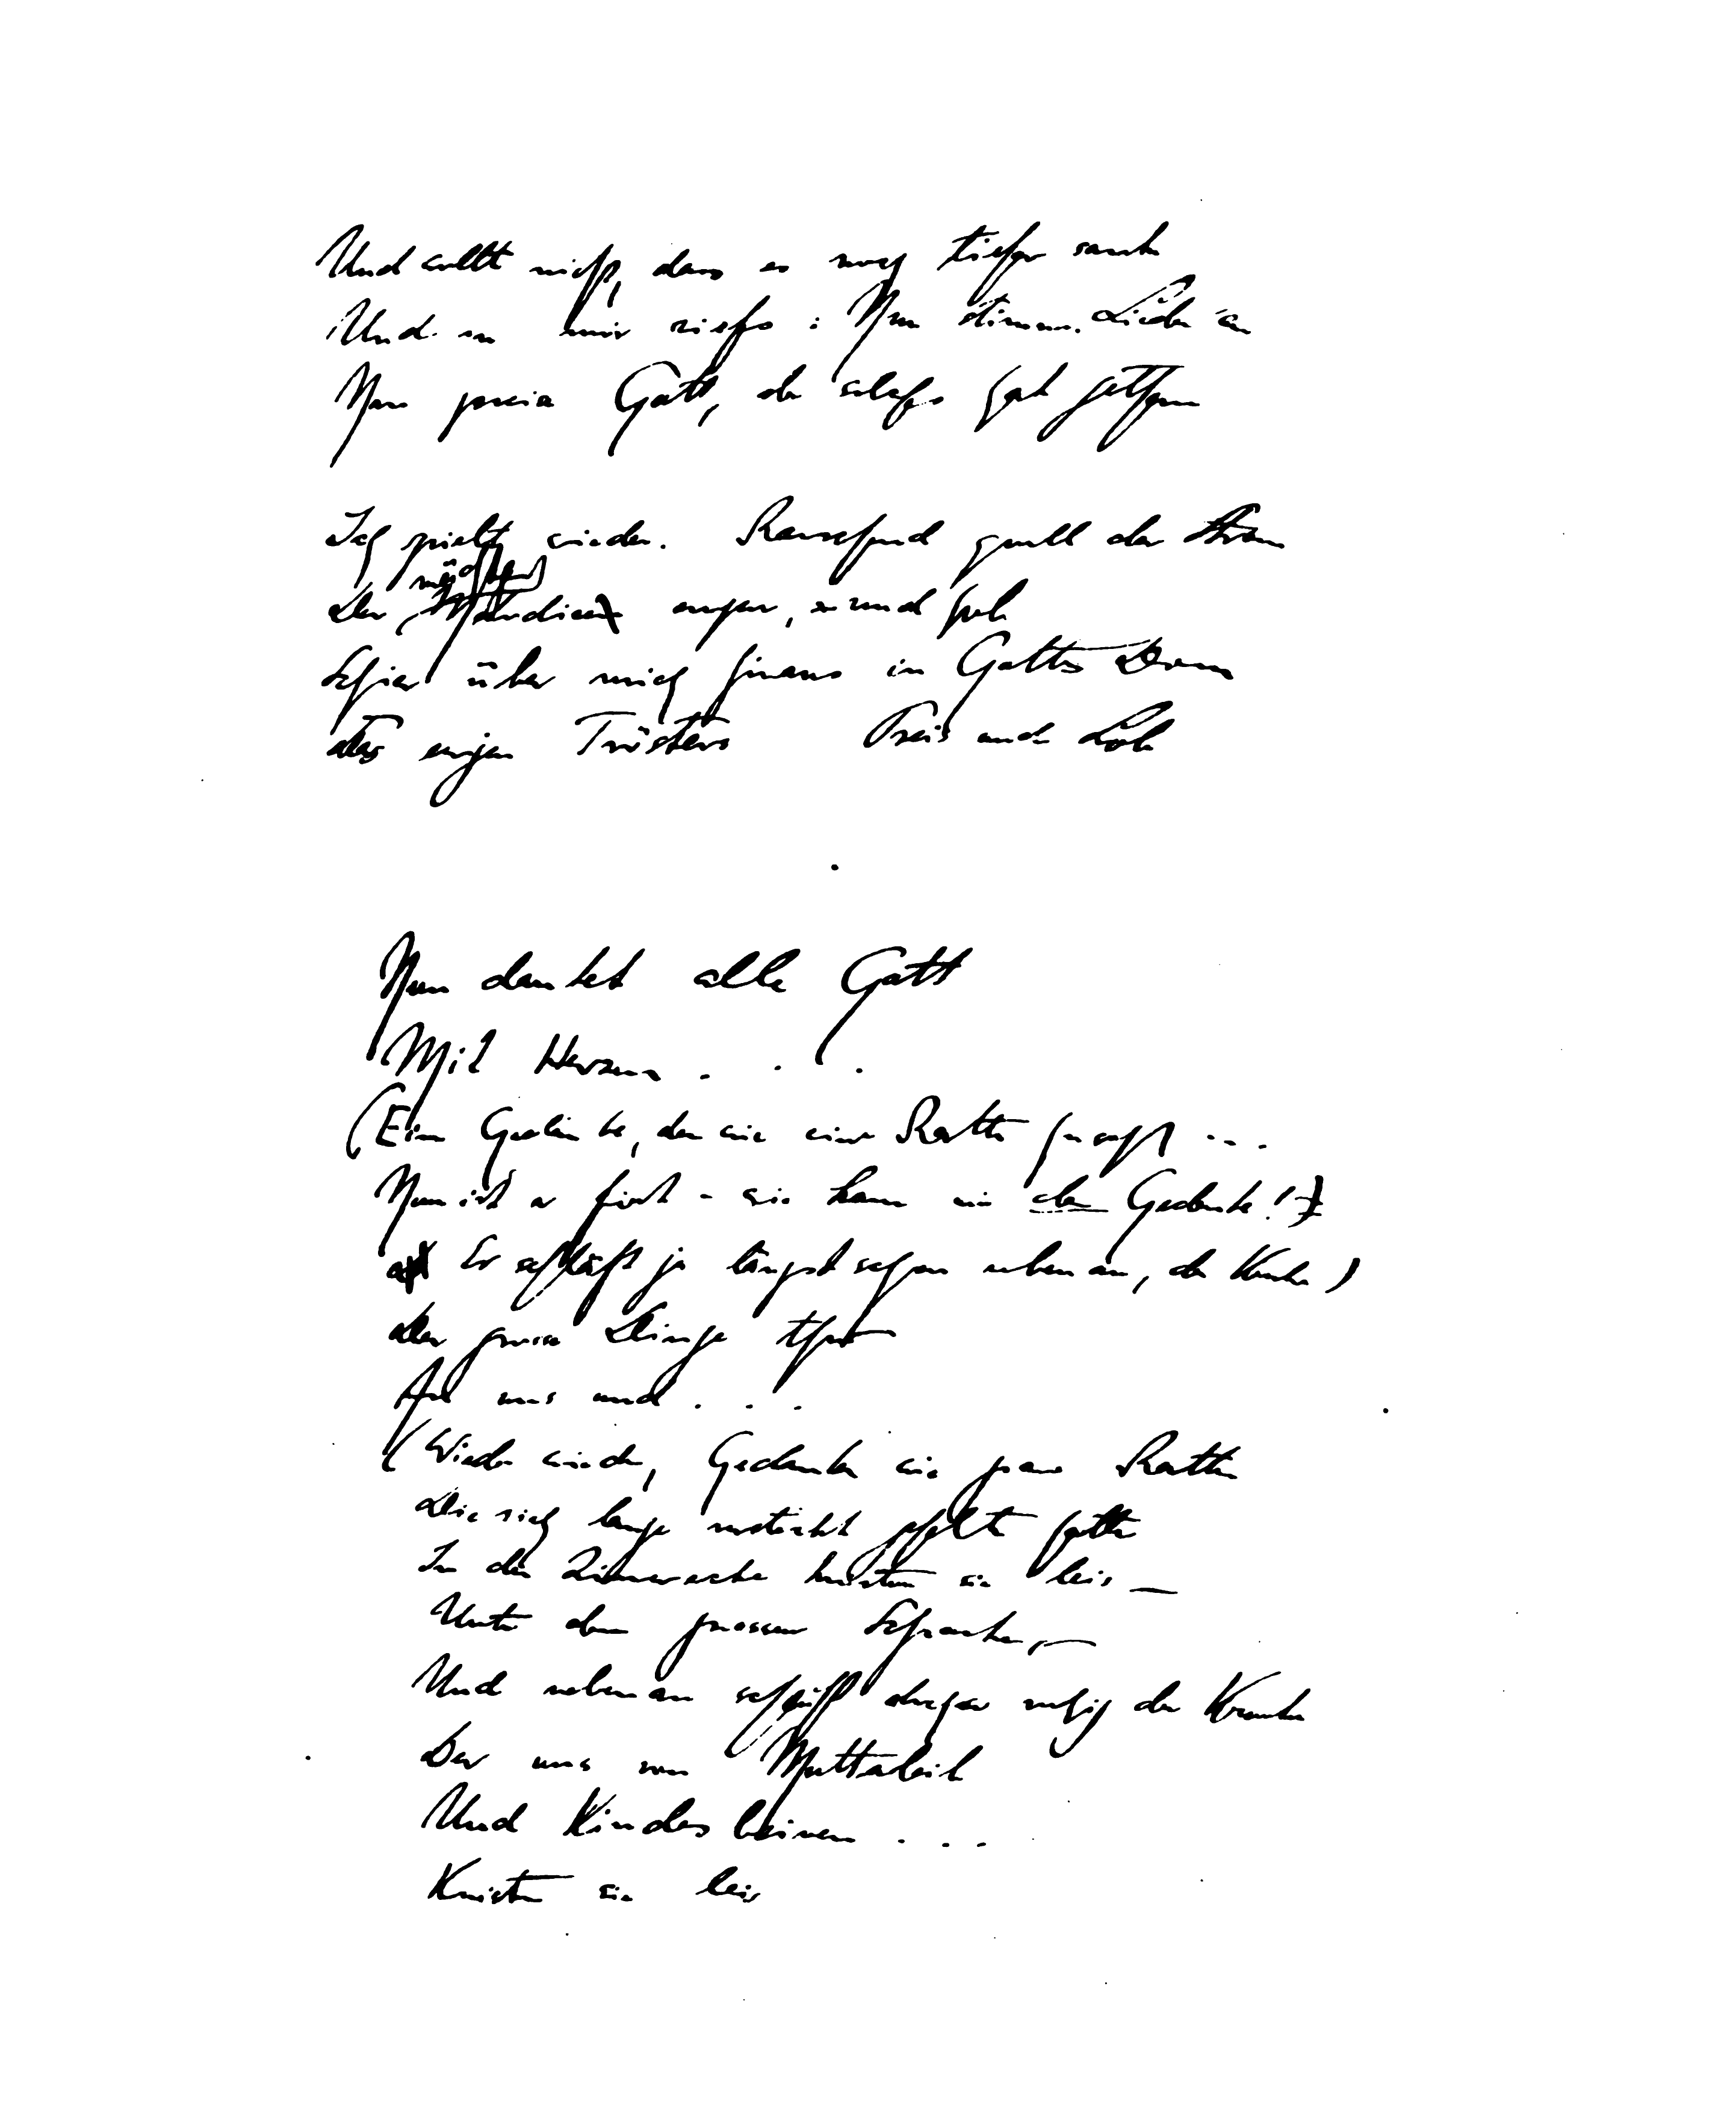 Und wollt nicht, dass es noch tiefer sank
Und in mir riefe: Nun stimm Lieder an
Nun preise Gott, der solches hat gethan
Ich spielte wieder. Rauschend quoll der Strom
Der mächtgen Melodieen empor, und hob
Schier über mich hinaus in Gottes Dom
Des ewgen Trösters Preis und Lob
Nun danket alle Gott
Mit Herzen . . .
(Ein Gedanke, der wie eine Ratte huscht ...
Nun ist er fort - wie kam mir der Gedanke!
Er schläft ja längst schon nebenan, der Kranke)
Der grosse Dinge thut
An uns und . . .
(Wieder wieder, Gedanken wie graue Ratten
Die sich lange versteckt gehalten hatten
In der Zimmerecke knistern sie leis —
Unter dem grossen Schranke, —
Und nebenan schläft ruhig der Kranke
Der uns von Mutterleib
Und Kindesbeinen . . .
Knistern sie leis